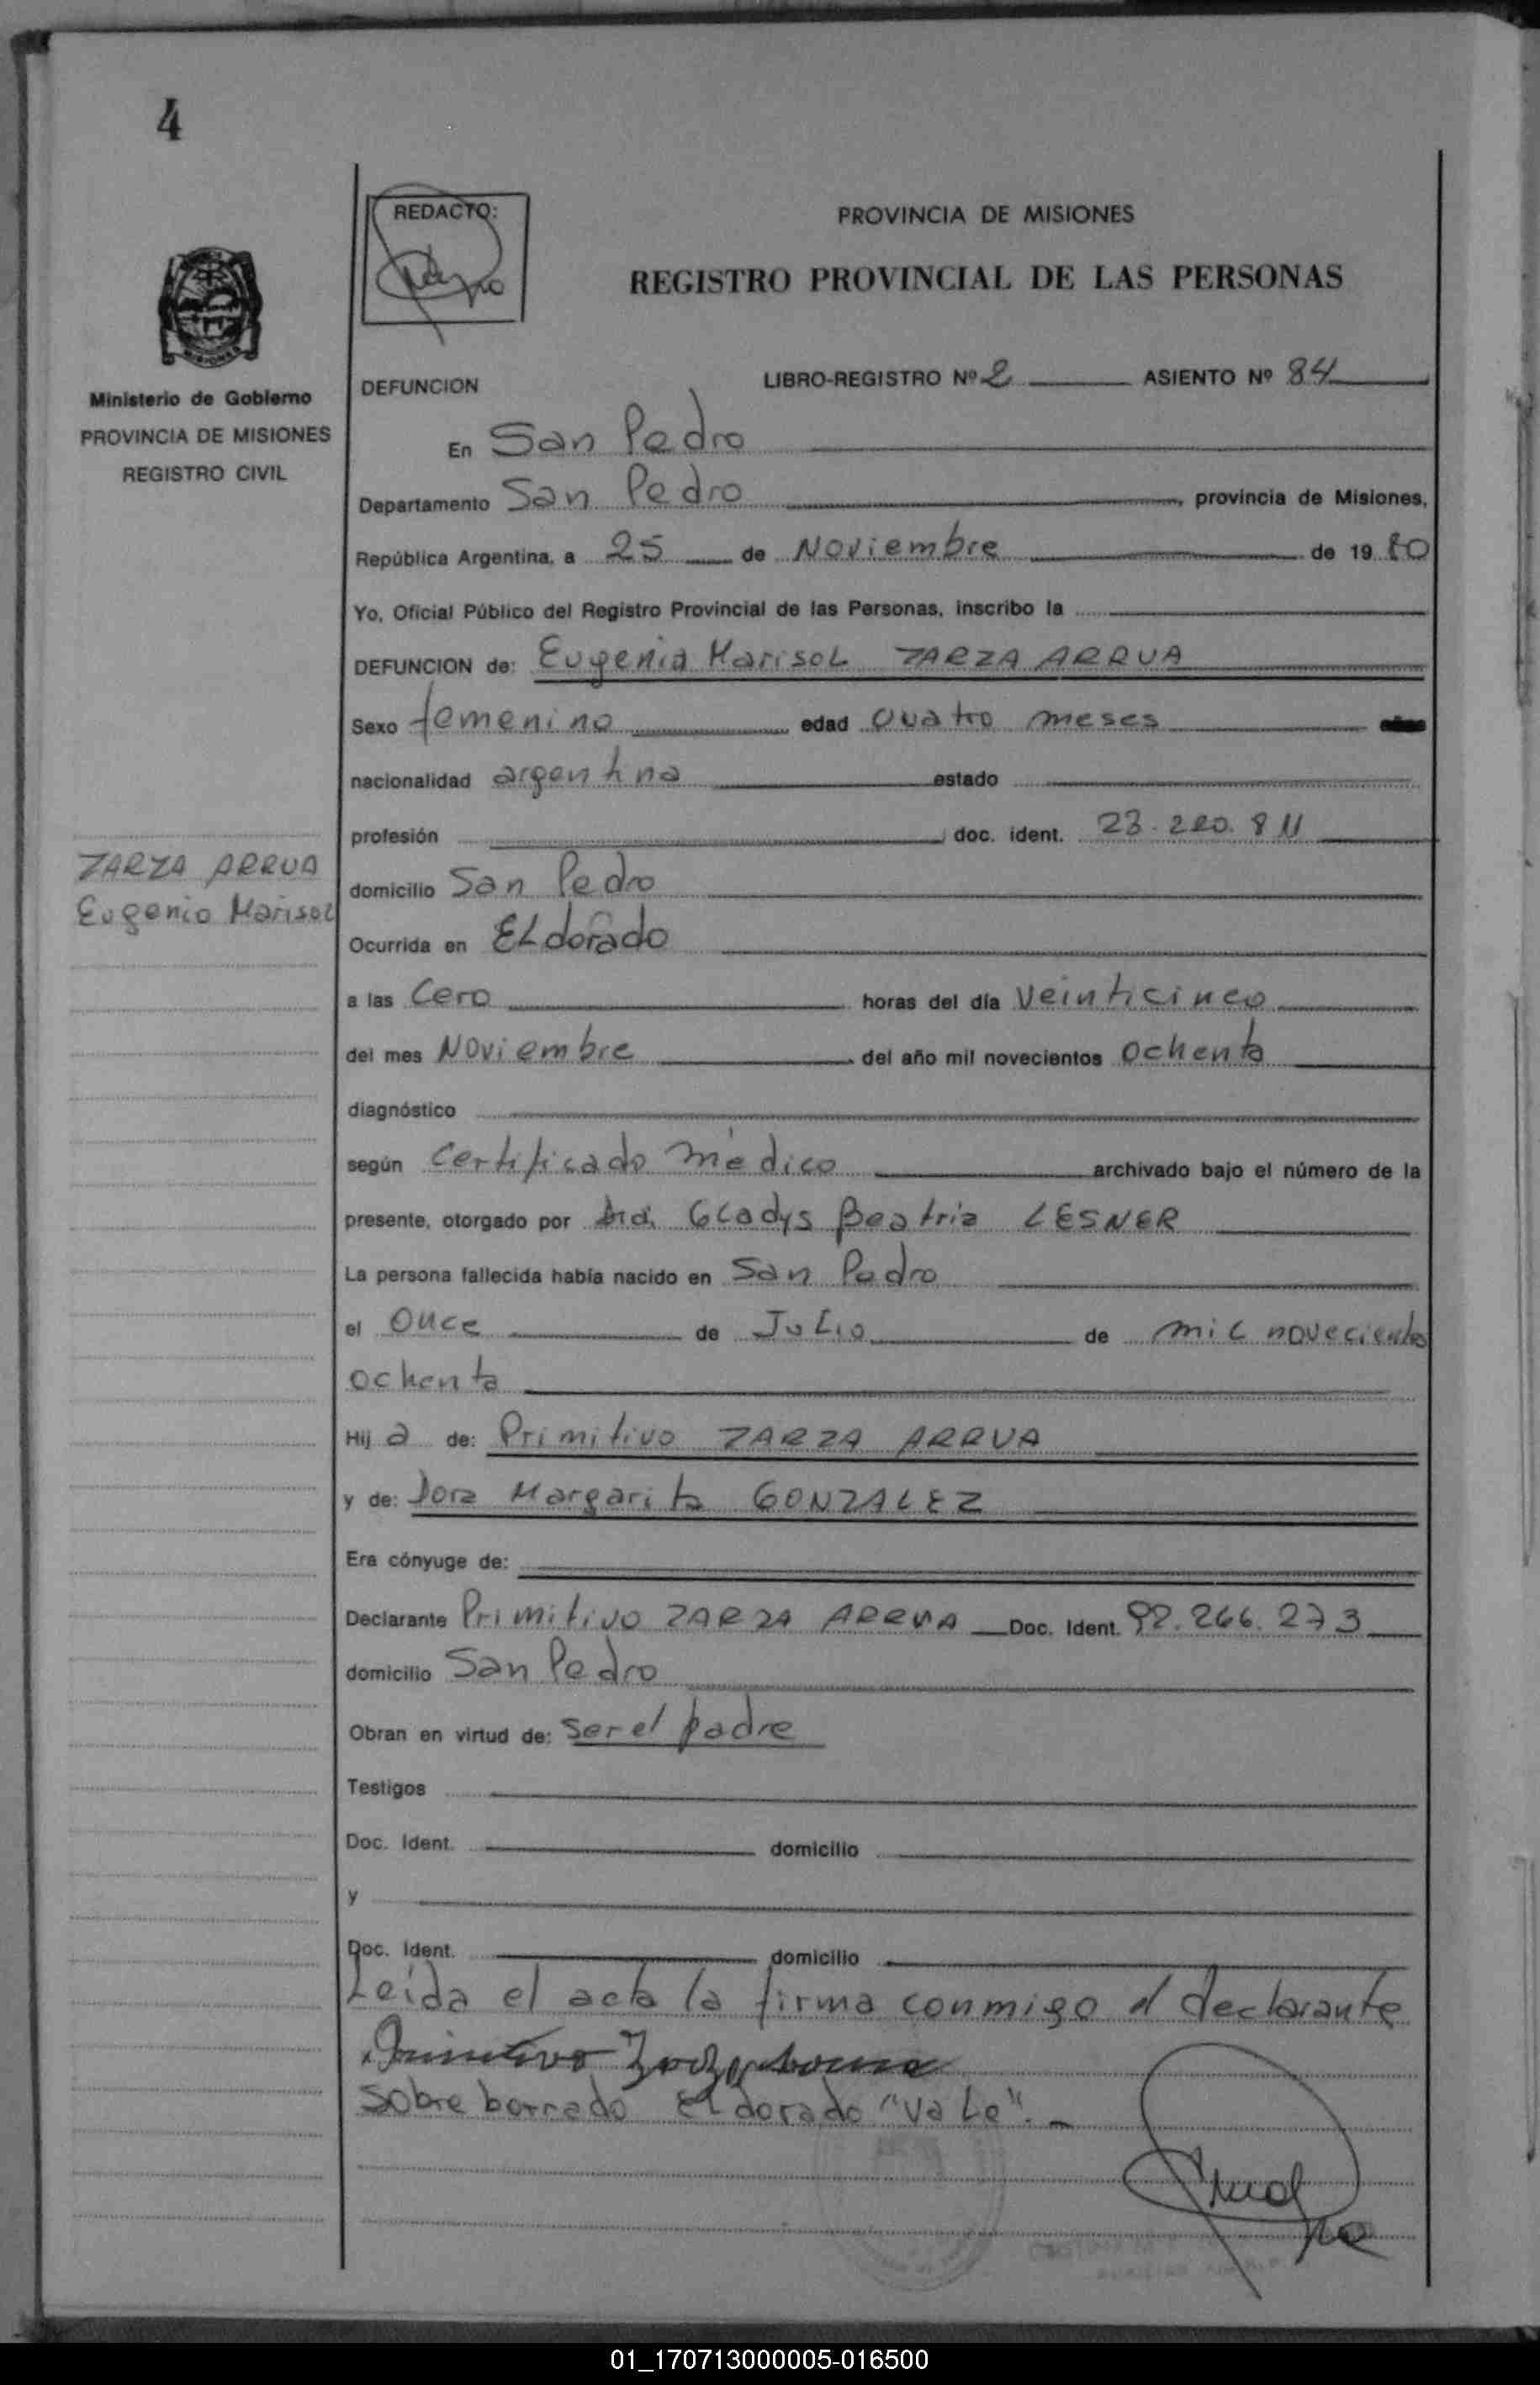 4
REDACTO:
PROVINCIA DE MISIONES
REGISTRO PROVINCIAL DE LAS PERSONAS
MISIONES
Ministerio de Gobierno
PROVINCIA DE MISIONES
REGISTRO CIVIL
DEFUNCION LIBRO-REGISTRO Nº 2 ASIENTO Nº 84
En San Pedro
Departamento San Pedro, provincia de Misiones,
República Argentina, a 25 de Noviembre de 1980
Yo, Oficial Público del Registro Provincial de las Personas, inscribo la
DEFUNCION de: Eugenia Marisol ZARZA ARRUA
Sexo femenino edad cuatro meses
nacionalidad argentina estado
profesión doc. ident. 23.220.811
ZARZA ARRUA
Eugenia Marisol
domicilio San Pedro
Ocurrida en ELdorado
a las Cero horas del día veinticinco
del mes Noviembre del año mil novecientos ochenta
diagnóstico
según certificado médico archivado bajo el número de la
presente, otorgado por Dra. Gladys Beatriz LESNER
La persona fallecida había nacido en San Pedro
el Once de Julio de mil novecientos
ochenta
Hij a de: Primitivo ZARZA ARRUA
y de: Dora Margarita GONZALEZ
Era cónyuge de:
Declarante Primitivo ZARZA ARRUA Doc. Ident. 92.266.273
domicilio San Pedro
Obran en virtud de: ser el padre
Testigos
Doc. Ident. domicilio
y
Doc. Ident. domicilio
Leida el acta la firma conmigo el declarante
Sobre borrado Eldorado "vale".-
01_170713000005-016500